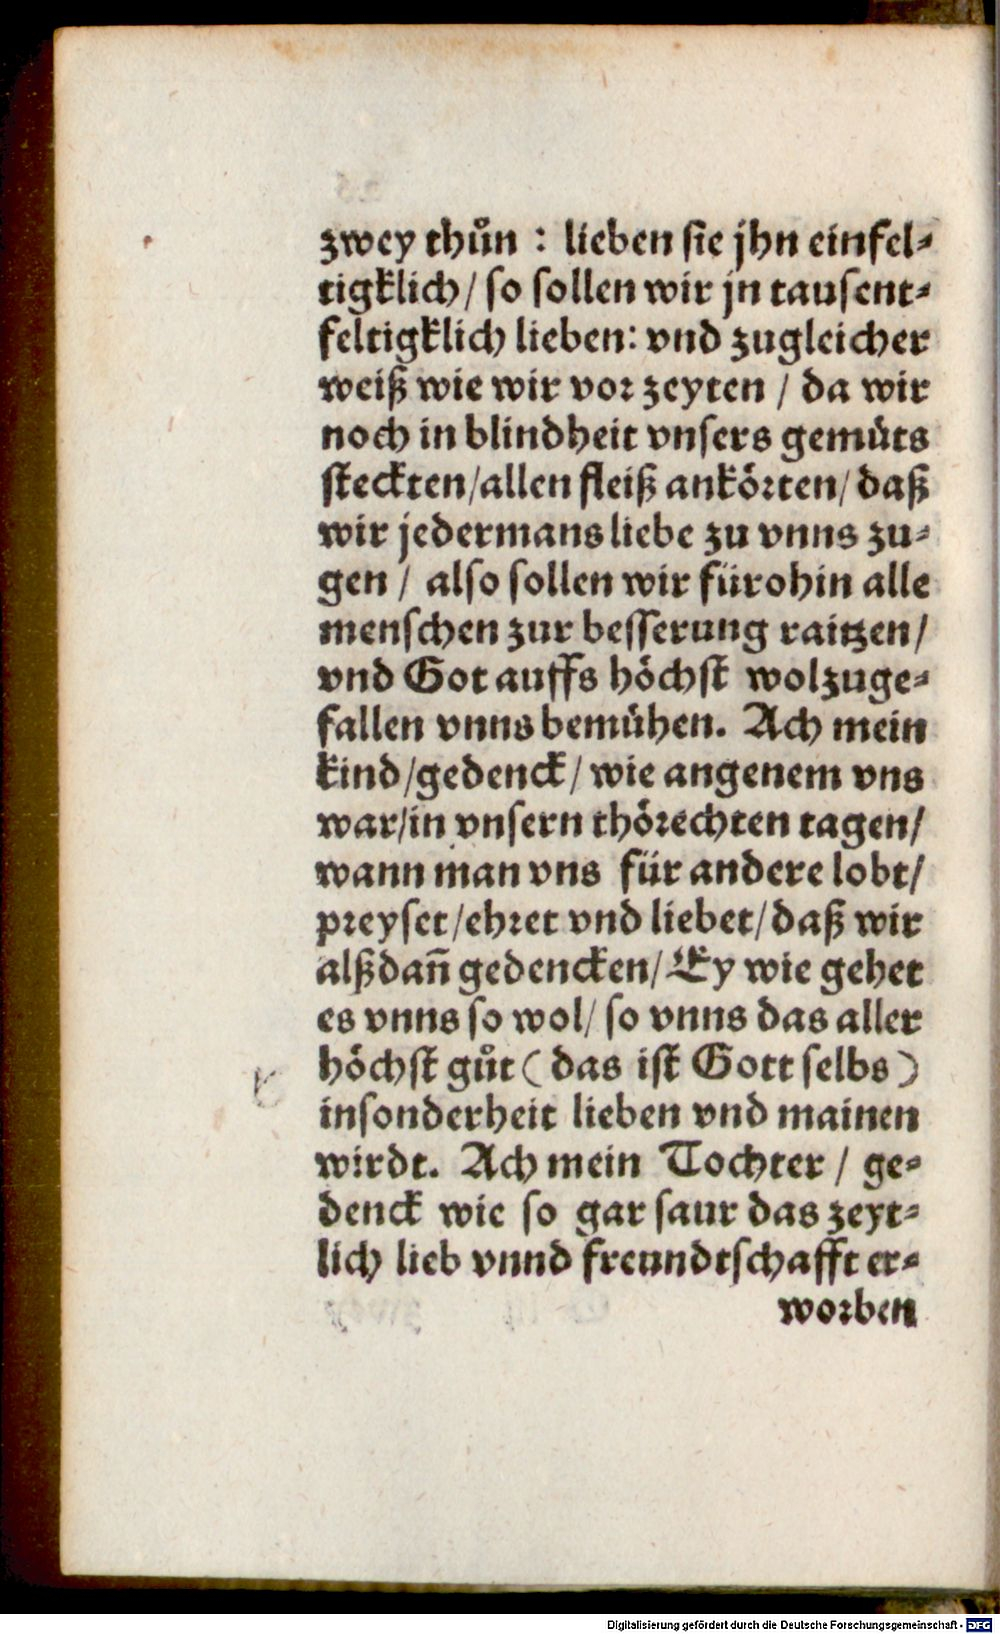 zwey thůn : lieben sie jhn einfel⸗
tigklich / so sollen wir jn tausent⸗
feltigklich lieben: vnd zugleicher
weiß wie wir vor zeyten / da wir
noch in blindheit vnsers gemüts
steckten / allen fleiß ankörten / daß
wir jedermans liebe zu vnns zu⸗
gen / also sollen wir fürohin alle
menschen zur besserung raitzen /
vnd Got auffs höchst wolzuge⸗
fallen vnns bemühen. Ach mein
kind / gedenck / wie angenem vns
war / in vnsern thörechten tagen /
wann man vns für andere lobt /
preyset / ehret vnd liebet / daß wir
alßdañ gedencken / Ey wie gehet
es vnns so wol / so vnns das aller
höchst gůt ( das ist Gott selbs )
insonderheit lieben vnd mainen
wirdt. Ach mein Tochter / ge⸗
denck wie so gar saur das zeyt⸗
lich lieb vnnd freundtschafft er⸗
worben
Digitalisierung gefördert durch die Deutsche Forschungsgemeinschaft - DFG